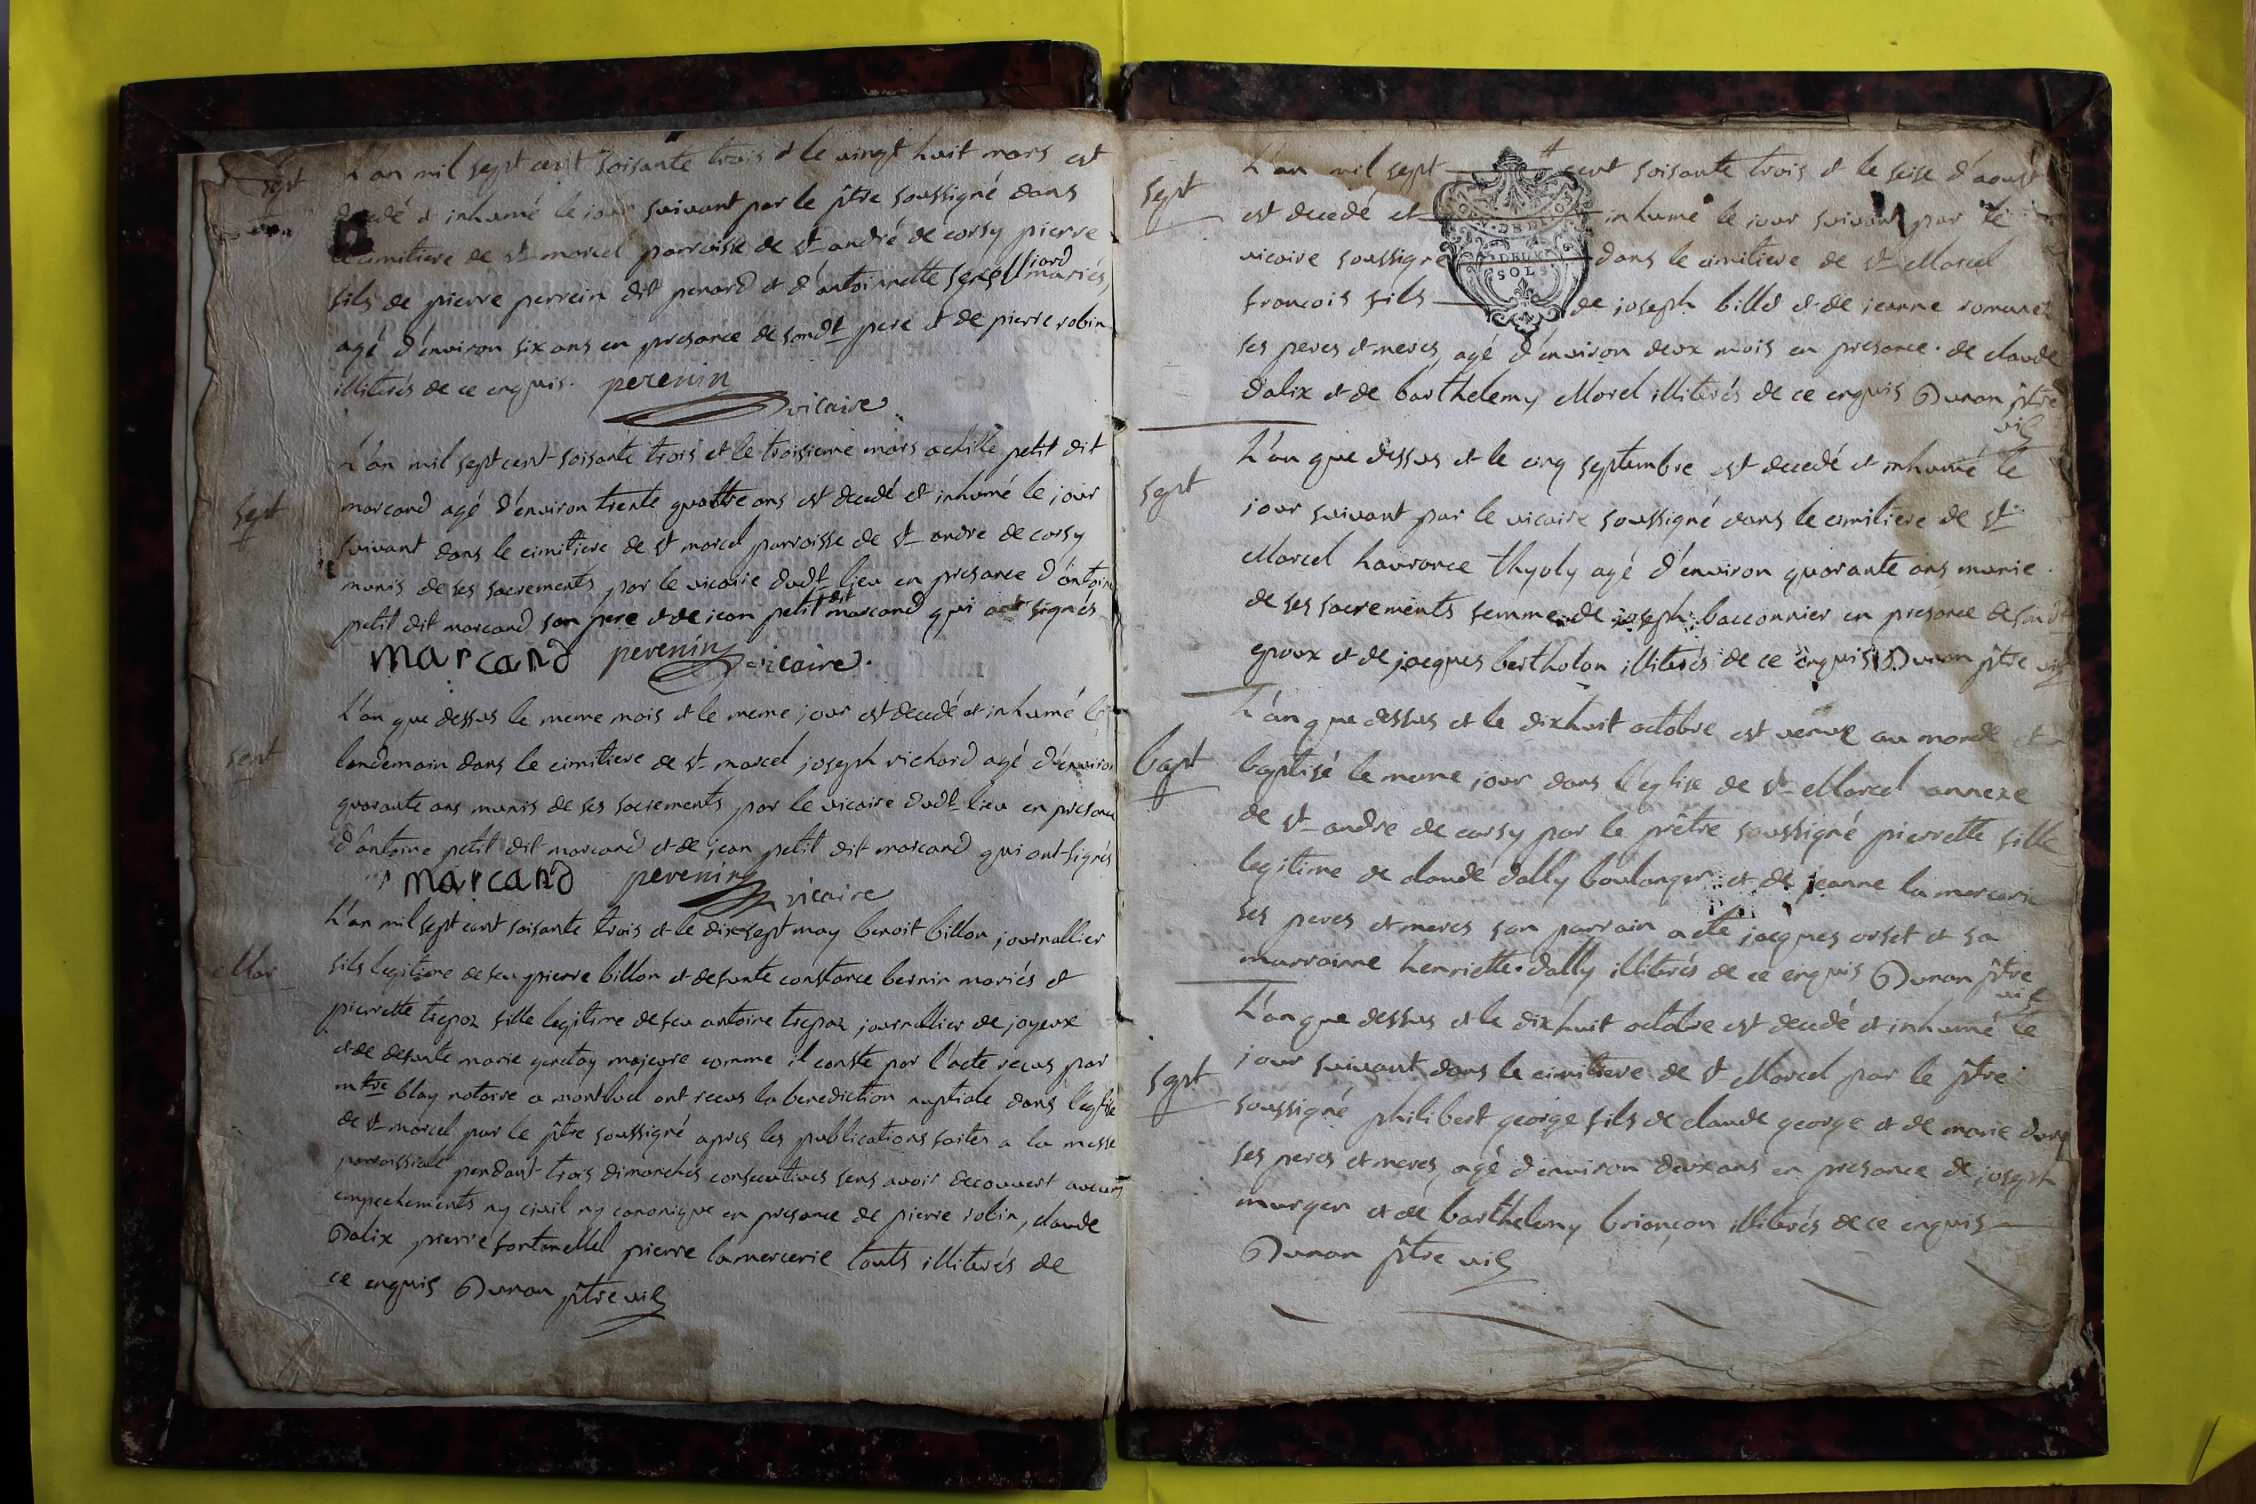 sept
L'an mil sept cent soisante trois et le vingt huit mars est
decedé et inhumé le jour suivant par le ptre soussigné dans
le cimitiere de st marcel parroisse de st andré de corsy pierre
fils de pierre perrein dit penard et d'antoinette mariés,
agé d'environ six ans en presance de sondt pere et de pierre robin
illiterés de ce enquis. perenin
vicaire
sept
L'an mil sept cent soisante trois et le troisieme mars achille petit dit
marcand agé d'environ trente quattre ans est decedé et inhumé le jour
suivant dans le cimitiere de st marcel parroisse de st andre de corsy
munis de ses sacrements par le vicaire dudt lieu en presance d'antoine
petit dit marcand son pere et de jean petit dit marcand qui ont signés
marcand perenin vicaire.
sept
L'an que dessus le meme mois et le meme jour est decedé et inhumé le
landemain dans le cimitiere de st marcel joseph richard agé d'environ
quarante ans munis de ses sacrements par le vicaire dudt lieu en presance
d'antoine petit dit marcand et de jean petit dit marcand qui ont signés
marcand perenin vicaire
Mar
L'an mil sept cent soisante trois et le dixsept may benoit billon journallier
fils legitime de feu pierre billon et defunte constance bernin mariés et
pierrette trepoz fille legitime de feu antoine trepoz journallier de joyeux
et de defunte marie majeure comme il conste par l'acte reçus par
mtre blay notoire a montluel ont recus la benediction nuptiale dans l'eglise
de st marcel par le ptre soussigné apres les publications faites a la messe
parroissiale pendant trois dimanches consecutives sens avoir decouvert aucuns
empechements ny civil ny canonique en presance de pierre robin, claude
Dalix pierre fontanellel pierre lamercerie touts illiterés de
ce enquis Dunan ptre vic
sept
L'an mil sept cent soisante trois et le seise d'aoust
est decedé et inhumé le jour suivant par le
vicaire soussigné dans le cimitiere de st Marcel
DEUX
SOLS
françois fils de joseph billd et de jeanne romanet
ses peres et meres, agé d'environ deux mois en presance de claude
dalix et de barthelemy Morel illiterés de ce enquis Dunan ptre
vic
sept
L'an que dessus et le cinq septembre est decedé et inhumé le
jour suivant par le vicaire soussigné dans le cimitiere de st
Marcel laurance thyoly agé d'environ quarante ans munie
de ses sacrements femme de joseph bacconnier en presance de sondt
epoux et de jacques bertholon illiterés de ce enquis Dunan ptre vic
bapt
L'an que dessus et le dixhuit octobre est venue au monde et
baptisé le meme jour dans l'eglise de st Marcel annexe
de st andre de corsy par le prêtre soussigné pierrette fille
legitime de claude dally boulanger et de jeanne la mercerie
ses peres et meres son parrain a eté jacques orset et sa
marrainne henriette dally illiterés de ce enquis Dunan ptre
vic
sept
L'an que dessus et le dixhuit octobre est decedé et inhumé le
jour suivant dans le cimitiere de st Marcel par le ptre
soussigné philibert george fils de claude george et de marie
ses peres et meres, agé d'environ deux ans en presance de joseph
murger et de barthelemy briançon illiterés de ce enquis
Dunan ptre vic